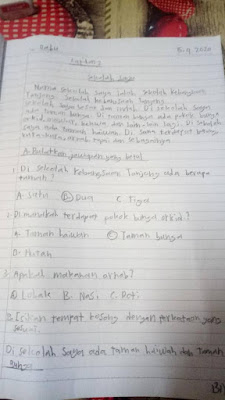 Rabu
Karangan
Sekolah Saya
Nama sekolah saya ialah sekolah kebangsaan
Tanjung. Sekolah kebangsaan Tanjung
sekolah saya besar dan indah. Di sekolah saya
ada taman bunga. Di taman bunga ada pokok bunga
dan lain-lain lagi. Di sekolah
saya ada taman haiwan. Di sana terdapat
dan sebagainya
A. Bulatkan jawapan yang betul
1. Di sekolah kebangsaan Tanjung ada berapa
taman?
A. Satu B. Dua C. Tiga
2. Di manakah terdapat pokok bunga orkid?
A. Taman haiwan C. Taman bunga
D. Hutan
3. Apakah makanan arnab?
A. Lobak B. Nasi C. Roti
B. Isikan tempat kosong dengan perkataan yang
sesuai.
Di sekolah saya ada taman haiwan dan taman